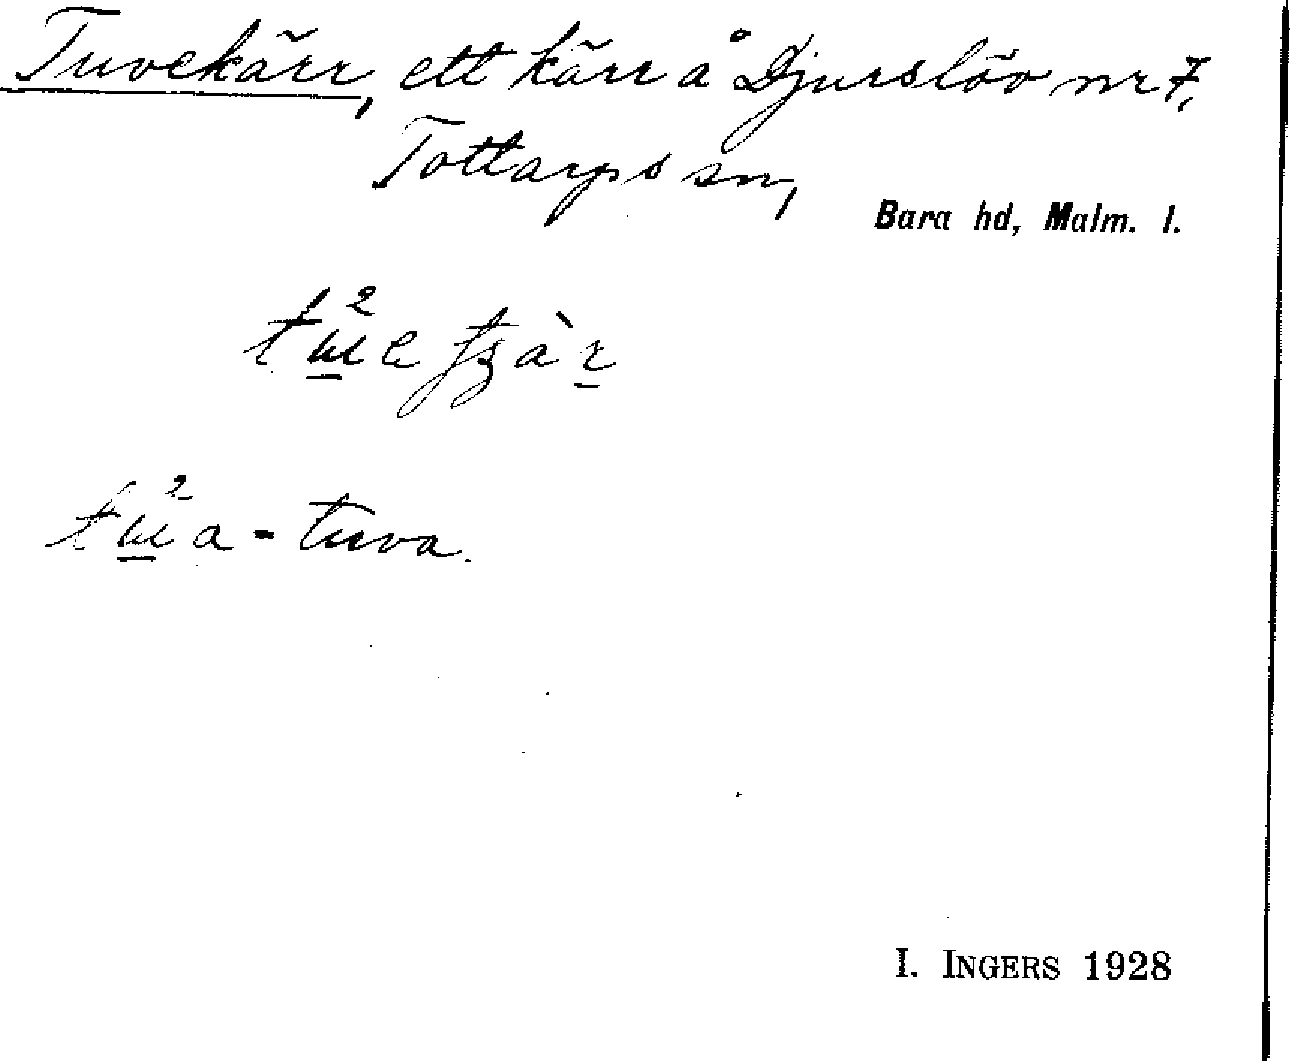 Tuvekärr, ett kärr å Djurslöv nr 7,
Tottarps sn,
Bara hd, Malm. l.
a - tuva.
I. INGERS 1928